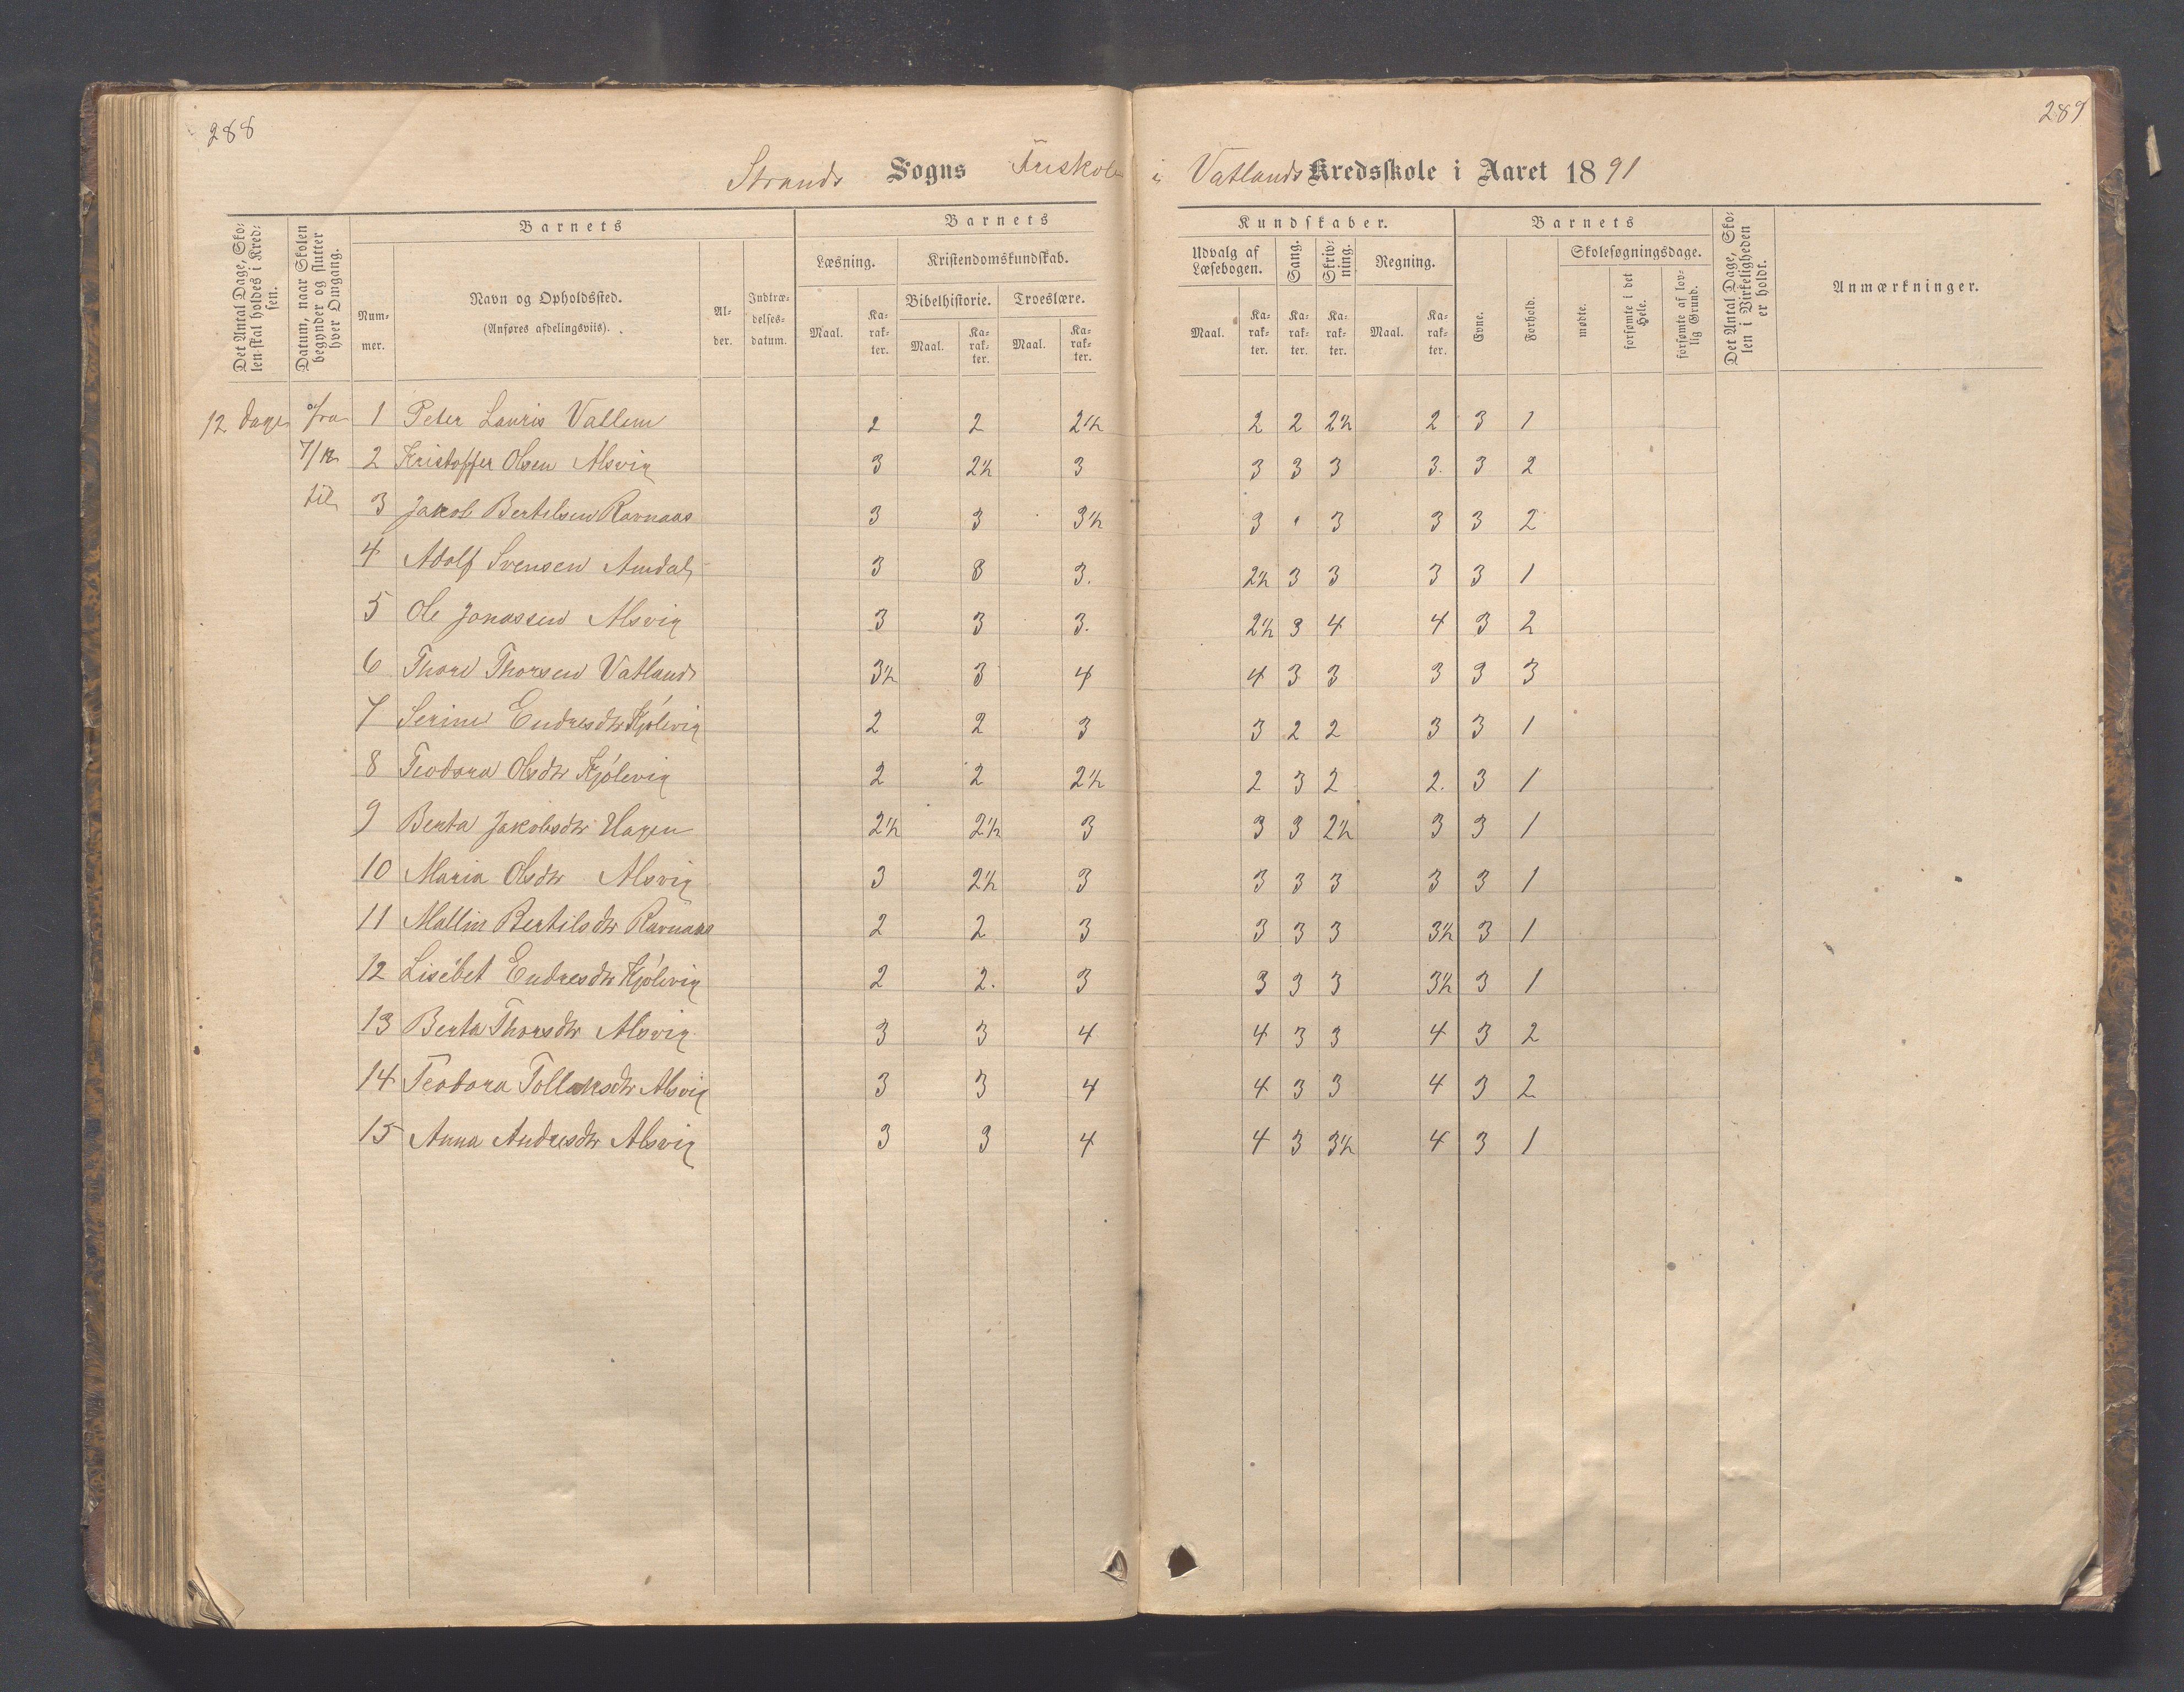 288
289
Strands Sogns Friskole i Vatlands Kredsskole i Aaret 1891
Det Antal Dage, Skolen skal holdes i Kredsen.
Datum, naar Skolen begynder og slutter hver Omgang.
Barnets
Nummer.
Navn og Opholdssted.
(Anføres afdelingsviis).
Alder.
Indtrædelsesdatum.
Barnets Kundskaber.
Læsning.
Kristendomskundskab.
Bibelhistorie.
Troeslære.
Udvalg af Læsebogen.
Sang.
Skrivning.
Regning.
Maal. Karakter. Maal. Karakter. Maal. Karakter. Maal. Karakter. Karakter. Karakter. Maal. Karakter.
Barnets
Evne.
Forhold.
Skolesøgningsdage.
mødte.
forsømte i det Hele.
forsømte af lovlig Grund.
Det Antal Dage, Skolen i Virkeligheden er holdt.
Anmærkninger.
12 dage fra 1 Peter Lauris Vallem 2 2 2½ 2 2 2½ 2 3 1
7/12 2 Kristoffer Olsen Alsvig 3 2½ 3 3 3 3 3. 3 2
til 3 Jakob Bertilsen Ravnaas 3 3 3½ 3 3 3 3 2
4 Adolf Svensen Amdal 3 3 3. 2½ 3 3 3 3 1
5 Ole Jonassen Alsvig 3 3 3. 2½ 3 4 4 3 2
6 Thore Thorsen Vatland 3½ 3 4 4 3 3 3 3 3
7 Serine Endresdtr Kjölevig 2 2 3 3 2 2 3 3 1
8 Teodora Olsdtr Kjölevig 2 2 2½ 2 3 2 2. 3 1
9 Berta Jakobsdtr Hagen 2½ 2½ 3 3 3 2½ 3 3 1
10 Maria Olsdtr Alsvig 3 2½ 3 3 3 3 3 3 1
11 Mallin Bertilsdtr Ravnaas 2 2 3 3 3 3 3½ 3 1
12 Lisebet Endresdtr Kjölevig 2 2. 3 3 3 3 3½ 3 1
13 Berta Thorsdtr Alsvig 3 3 4 4 3 3 4 3 2
14 Teodora Tollaksdtr Alsvig 3 3 4 4 3 3 4 3 2
15 Anna Andresdtr Alsvig 3 3 4 4 3 3½ 4 3 1